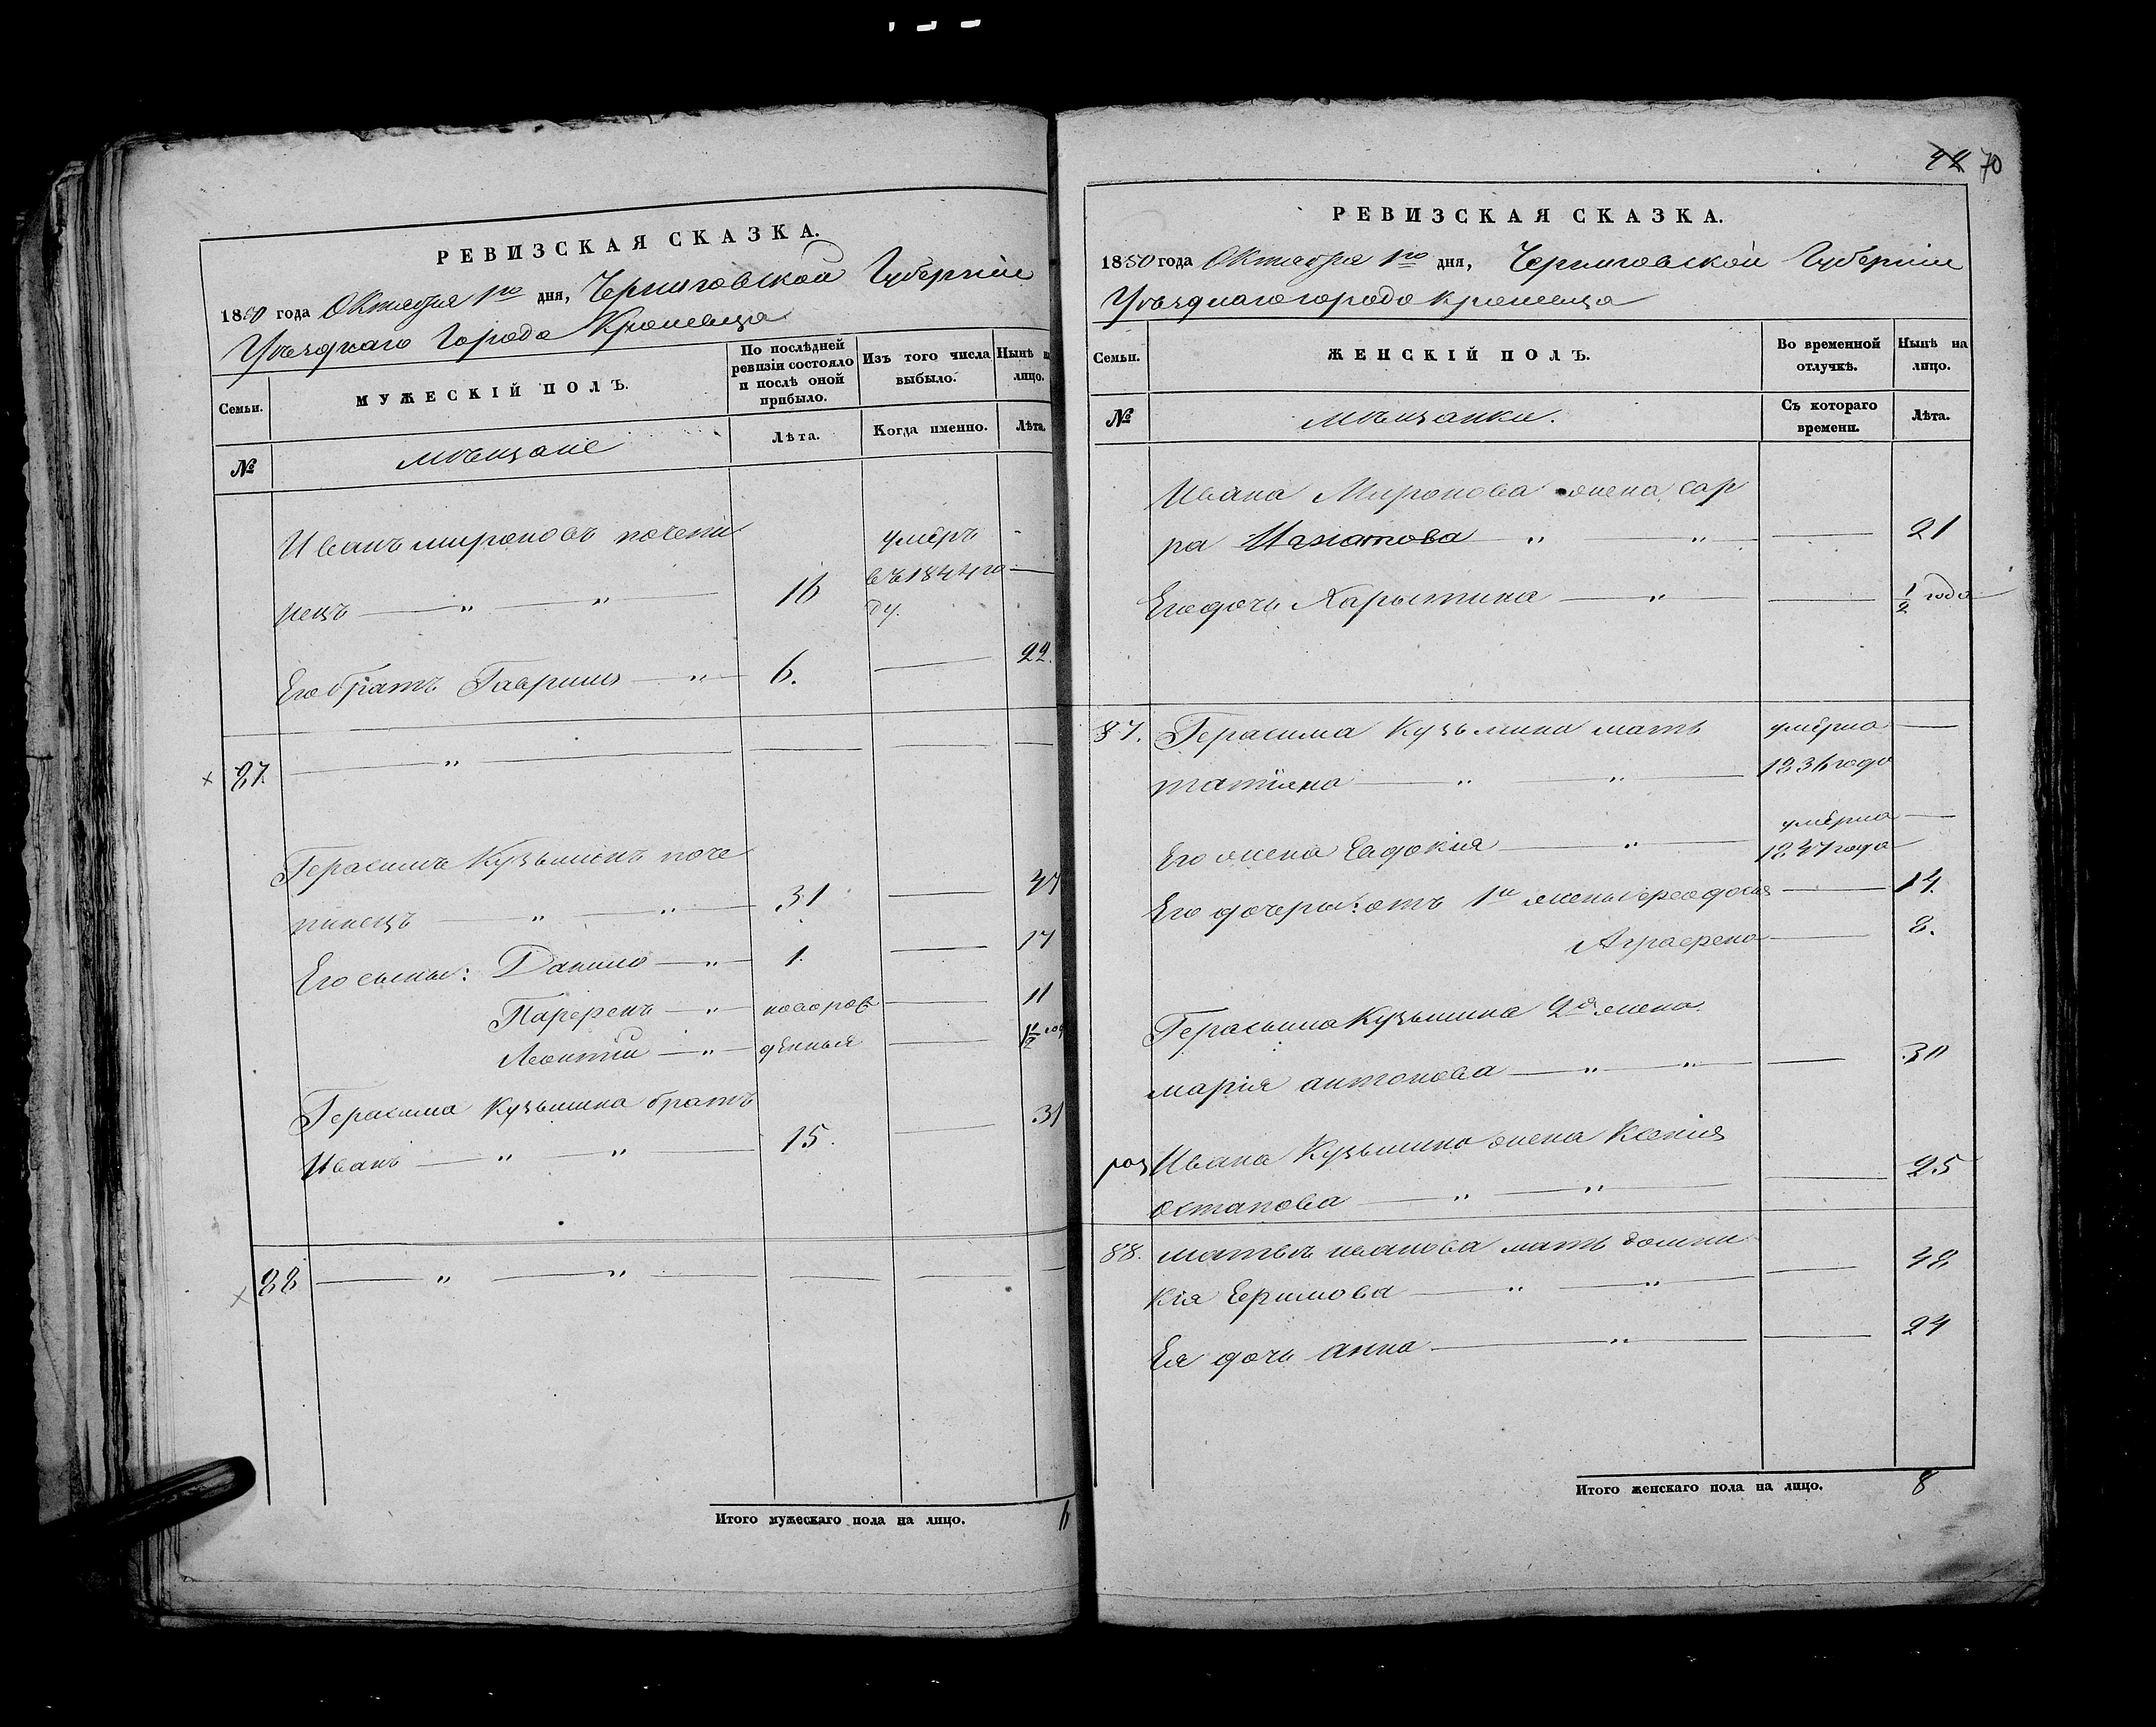 РЕВИЗСКАЯ СКАЗКА.
1850 года Октября 1го дня, Черниговской Губерніи
Уѣзднаго Города Кролевца
Семьи.
МУЖЕСКІЙ ПОЛЪ.
По послѣдней ревизіи состояло и послѣ оной прибыло.
Изъ того числа выбыло.
Нынѣ на лицо.
№
мѣщане
Лѣта.
Когда именно.
Лѣта.
Иванъ мироновъ
умеръ
16
въ 1844 го
ду.
Его братъ Гаврило 6. 22.
87.
Герасимъ Кузьминъ
31 47
Его сыны: Данило 1. 17
Парфенъ новорож 11
Леонтій денныя
Герасима Кузьмина братъ
Иванъ 15. 31
88
Итого мужескаго пола на лицо. 6
70
РЕВИЗСКАЯ СКАЗКА.
1850 года Октября 1го дня, Черниговской Губерніи
Уѣзднаго города кролевца
Семьи.
ЖЕНСКІЙ ПОЛЪ.
Во временной отлучкѣ.
Нынѣ на лицо.
№
мѣщанки.
Съ котораго времени.
Лѣта.
Ивана Миронова жена
21
Его дочь ½ года
87. Герасима Кузьмина мать умерла
татіяна 1836 года
Его жена Евдокія умерла
1847 года
Его дочери: отъ 1й жены феодосія 14.
Аграфена 8.
Герасима Кузьмина 2я жена
марія антонова 30
Ивана Кузьмина жена Ксенія
остапова 25
88. иванова мать домни
кія Ефимова 48
Ея дочь анна 24
Итого женскаго пола на лицо. 8